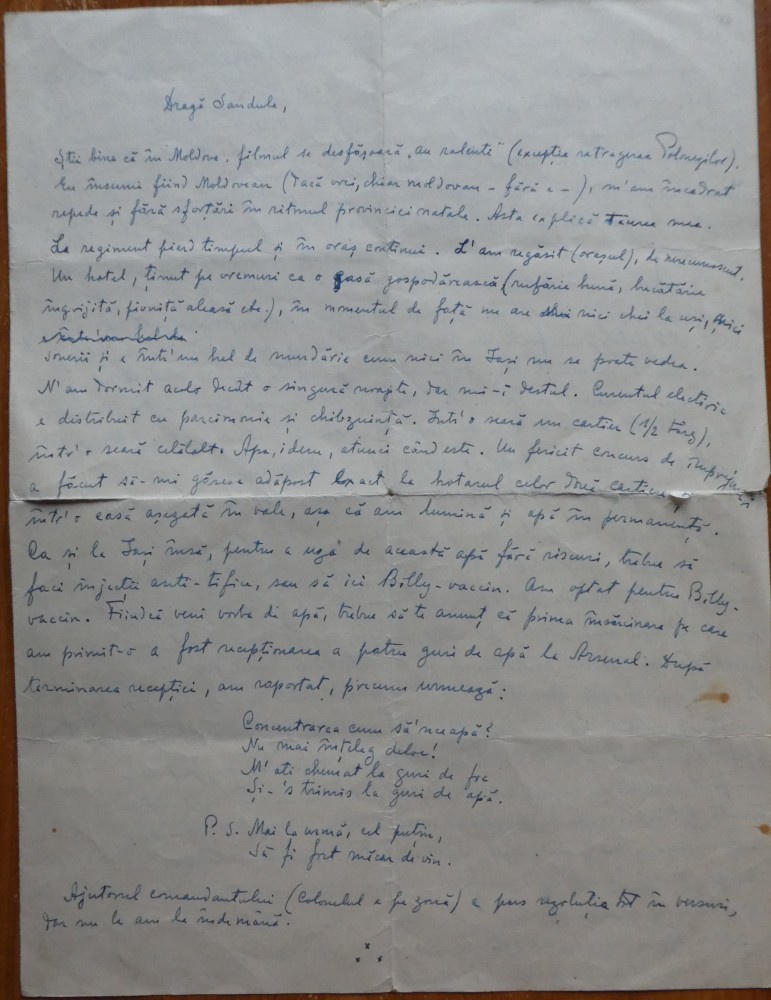 Dragă Sandule,
Știi bine că în Moldova, filmul se desfășoară „au ralenti" (excepție retragerea Polonezilor).
Eu însumi fiind Moldovean (dacă vrei, chiar moldovan - fără e -), m'am încadrat
repede și fără sforțări în ritmul provinciei natale. Asta explică tăcerea mea.
La regiment pierd timpul și în oraș continui. L'am regăsit (orașul), de nerecunoscut.
Un hotel, ținut pe vremuri ca o casă gospodărească (rufărie bună, bucătărie
îngrijită, pivniță aleasă etc.), în momentul de față nu are nici chei la uși, nici
sonerii și e într'un hal de murdărie cum nici în Iași nu se poate vedea.
N'am dormit acolo decât o singură noapte, dar mi-i destul. Curentul electric
e distribuit cu parcimonie și chibzuință. Într'o seară un cartier (1/2 târg),
într'o seară celălalt. Apa, idem, atunci când este. Un fericit concurs de împrejurări
a făcut să-mi găsesc adăpost exact la hotarul celor două cartiere
într'o casă așezată în vale, așa că am lumină și apă în permanență.
Ca și la Iași însă, pentru a uza de această apă fără riscuri, trebue să
faci injecții anti-tifice, sau să iei Billy-vaccin. Am optat pentru Billy-
vaccin. Fiindcă veni vorba de apă, trebue să te anunț că prima însărcinare pe care
am primit-o a fost recepționarea a patru guri de apă la Arsenal. După
terminarea recepției, am raportat, precum urmează:
Concentrarea cum să'nceapă?
Nu mai înțeleg deloc!
M'ați chemat la guri de foc
Și-'s trimis la guri de apă.
P. S. Mai la urmă, cel puțin,
Să fi fost măcar de vin.
Ajutorul comandantului (Colonelul e pe zonă) a pus rezoluția tot în versuri,
dar nu le am la îndemână.